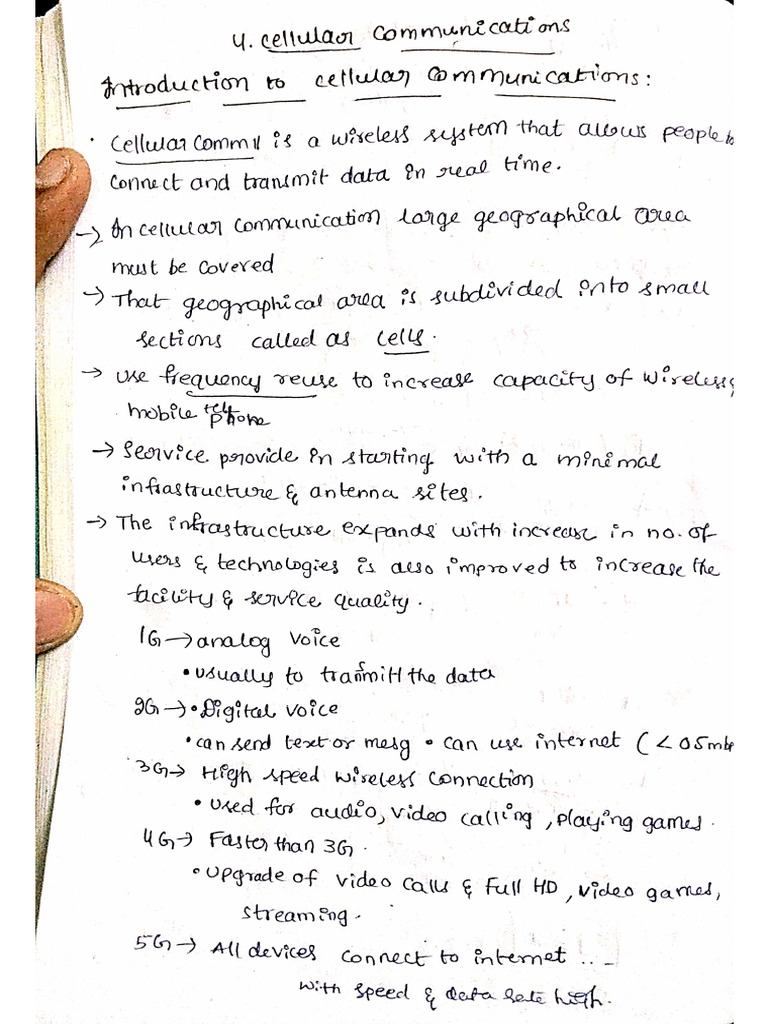 4. Cellular Communications
Introduction to cellular Communications:
• Cellular Commn is a wireless system that allows people to
connect and transmit data in real time.
→ In cellular communication large geographical area
must be covered
→ That geographical area is subdivided into small
sections called as cells.
→ use frequency reuse to increase capacity of wireless
mobile telephone
→ Service provide in starting with a minimal
infrastructure & antenna sites.
→ The infrastructure expands with increase in no. of
users & technologies is also improved to increase the
facility & service quality.
1G → analog voice
• usually to transmitt the data
2G → • Digital voice
• can send text or mesg • can use internet (< 05mb
3G → High speed wireless connection
• used for audio, video calling, playing games.
4G → Faster than 3G.
• upgrade of video calls & Full HD, video games,
streaming.
5G → All devices connect to internet ...
with speed & data rate high.